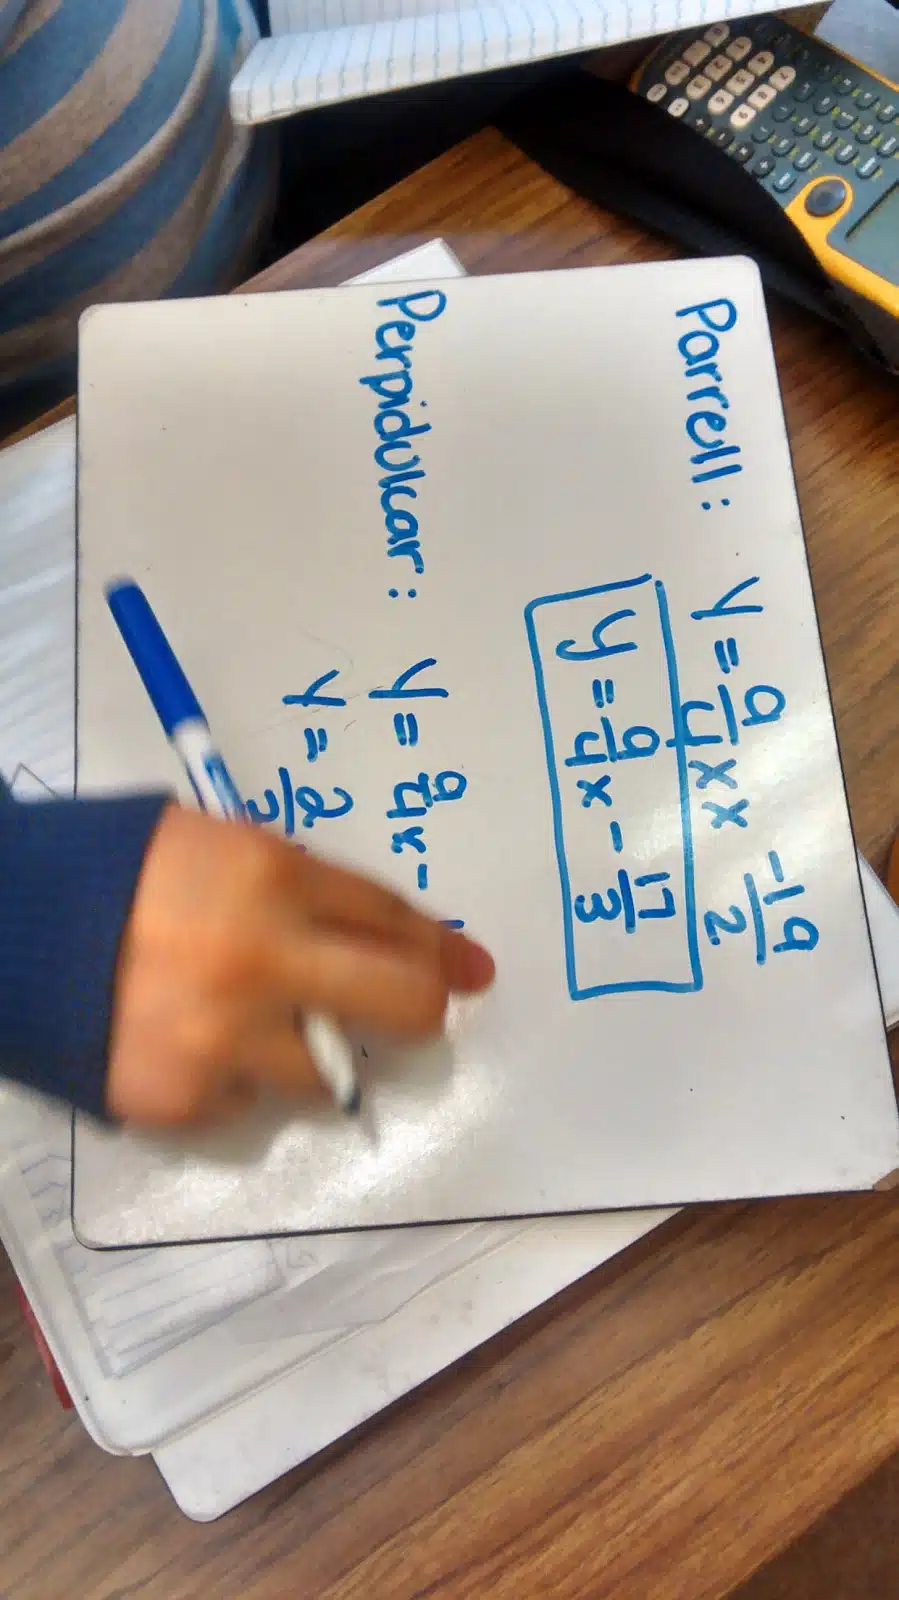 Parrell: y = 9/4 xx -19/2
y = 9/4 x - 17/3
Perpidulcar: y = 9/4 x -
y = 2